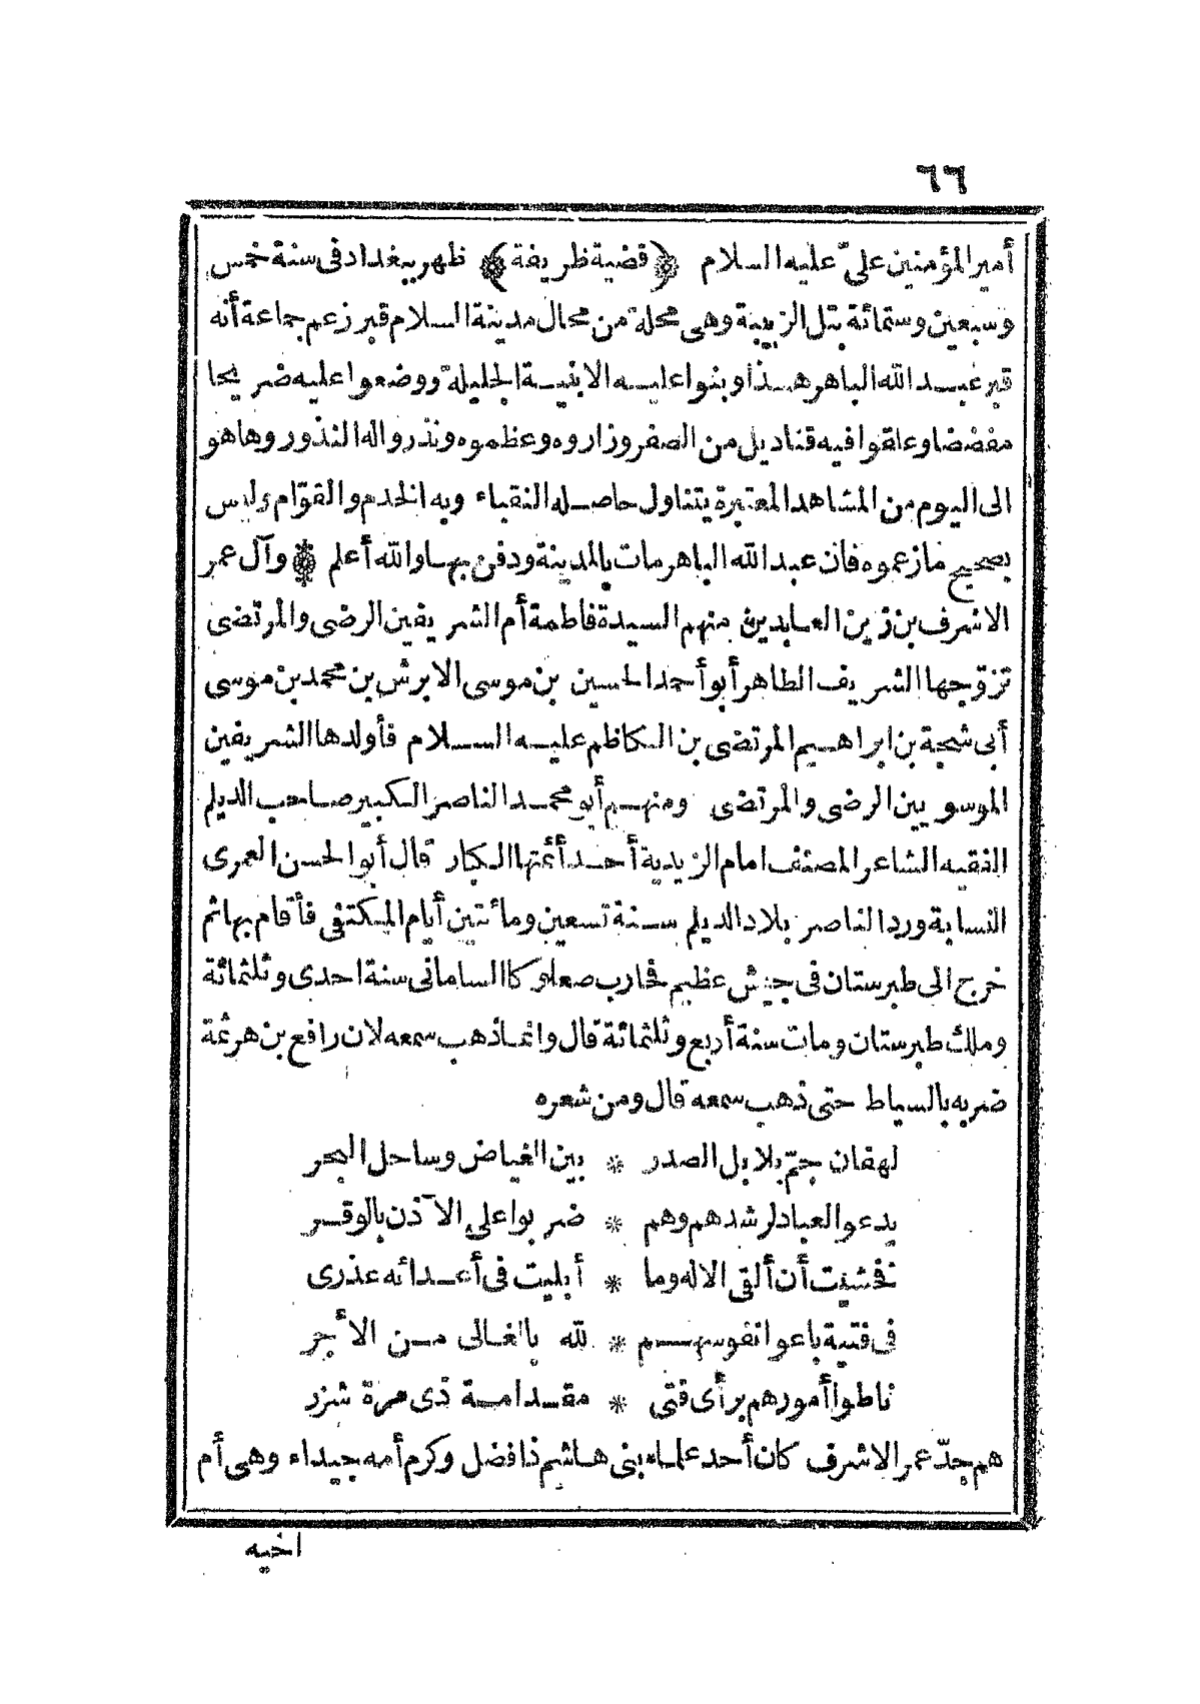 ٦٦
أمير المؤمنين علىّ عليه السلام ﴿قضية ظريفة﴾ ظهر ببغداد فى سنة خمس
وسبعين وستمائة بتل الزبيبة وهى محلة من محال مدينة السلام قبر زعم جماعة أنه
قبر عبد الله الباهر هذا وبنوا عليه الابنية الجليلة ووضعوا عليه ضريحا
مفضضا وعلقوا فيه قناديل من الصفر وزاروه وعظموه ونذروا له النذور وها هو
الى اليوم من المشاهد المعتبرة يتناول حاصله النقباء وبه الخدم والقوّام وليس
بصحيح ما زعموه فان عبد الله الباهر مات بالمدينة ودفن بها والله أعلم * وآل عمر
الاشرف بن زين العابدين منهم السيدة فاطمة أم الشريفين الرضى والمرتضى
تزوّجها الشريف الطاهر أبو أحمد الحسين بن موسى الابرش بن محمد بن موسى
أبى شجة بن ابراهيم المرتضى بن الكاظم عليه السلام فأولدها الشريفين
الموسويين الرضى والمرتضى ومنهم أبو محمد الناصر الكبير صاحب الديلم
الفقيه الشاعر المصنف امام الزيدية أحد أئمتها الكبار قال أبو الحسن العمرى
النسابة ورد الناصر بلاد الديلم سنة تسعين ومائتين أيام المكتفى فأقام بها ثم
خرج الى طبرستان فى جيش عظيم فحارب صعلوكا السامانى سنة احدى وثلثمائة
وملك طبرستان ومات سنة أربع وثلثمائة قال وانما ذهب سمعه لان رافع بن هرثمة
ضربه بالسياط حتى ذهب سمعه قال ومن شعره
لهفان جمّ بلابل الصدر * بين الغياض وساحل البحر
يدعو العباد لرشدهم وهم * ضربوا على الآذن بالوقر
فخشيت أن ألقى الاله وما * أبليت فى أعدائه عذرى
فى فتية باعوا نفوسهم * لله بالغالى من الأجر
ناطوا أمورهم برأى فتى * مقدامة ذى مرة شزر
هم جدّ عمر الاشرف كان أحد علماء بنى هاشم ذا فضل وكرم أمه جيداء وهى أم
اخيه